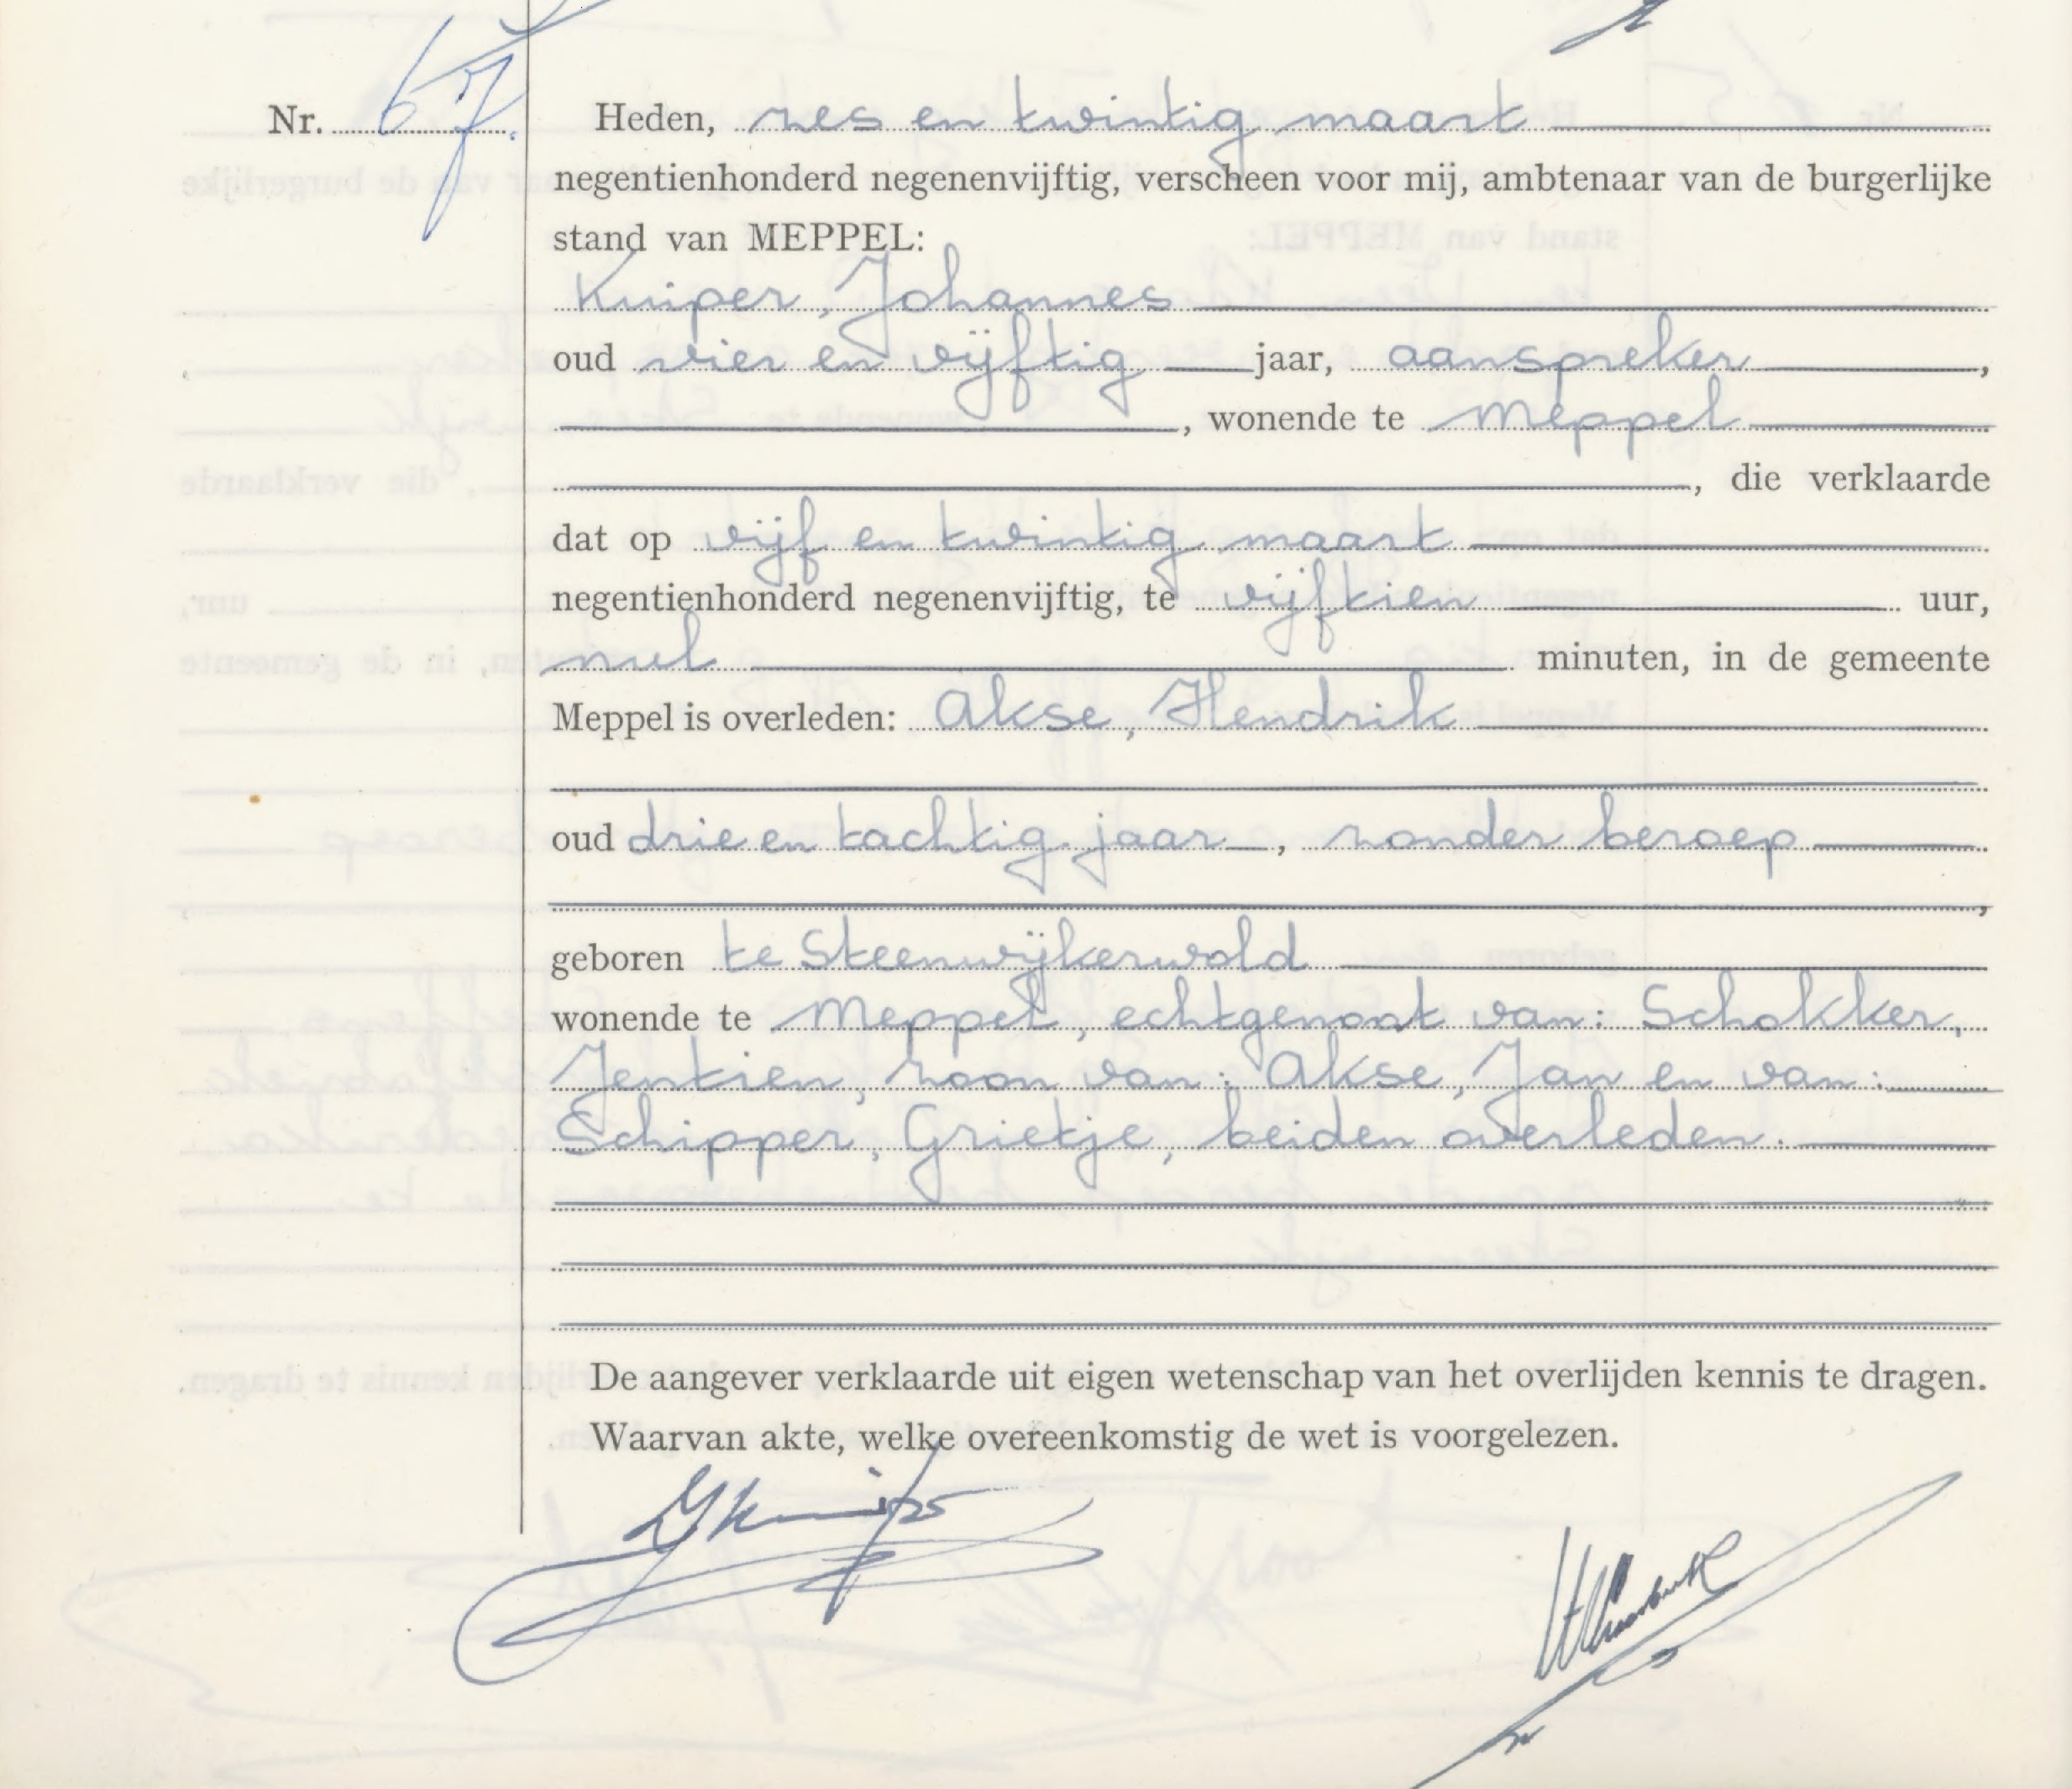 Nr. 67.
Heden, zes en twintig maart
negentienhonderd negenenvijftig, verscheen voor mij, ambtenaar van de burgerlijke
stand van MEPPEL:
Kuiper, Johannes
oud vier en vijftig jaar, aanspreker,
, wonende te Meppel
, die verklaarde
dat op vijf en twintig maart
negentienhonderd negenenvijftig, te vijftien uur,
nul minuten, in de gemeente
Meppel is overleden: Akse, Hendrik
oud drie en tachtig jaar, zonder beroep
,
geboren te Steenwijkerwold
wonende te Meppel, echtgenoot van: Schokker,
Jentien, zoon van: Akse, Jan en van:
Schipper, Grietje, beiden overleden.
De aangever verklaarde uit eigen wetenschap van het overlijden kennis te dragen.
Waarvan akte, welke overeenkomstig de wet is voorgelezen.